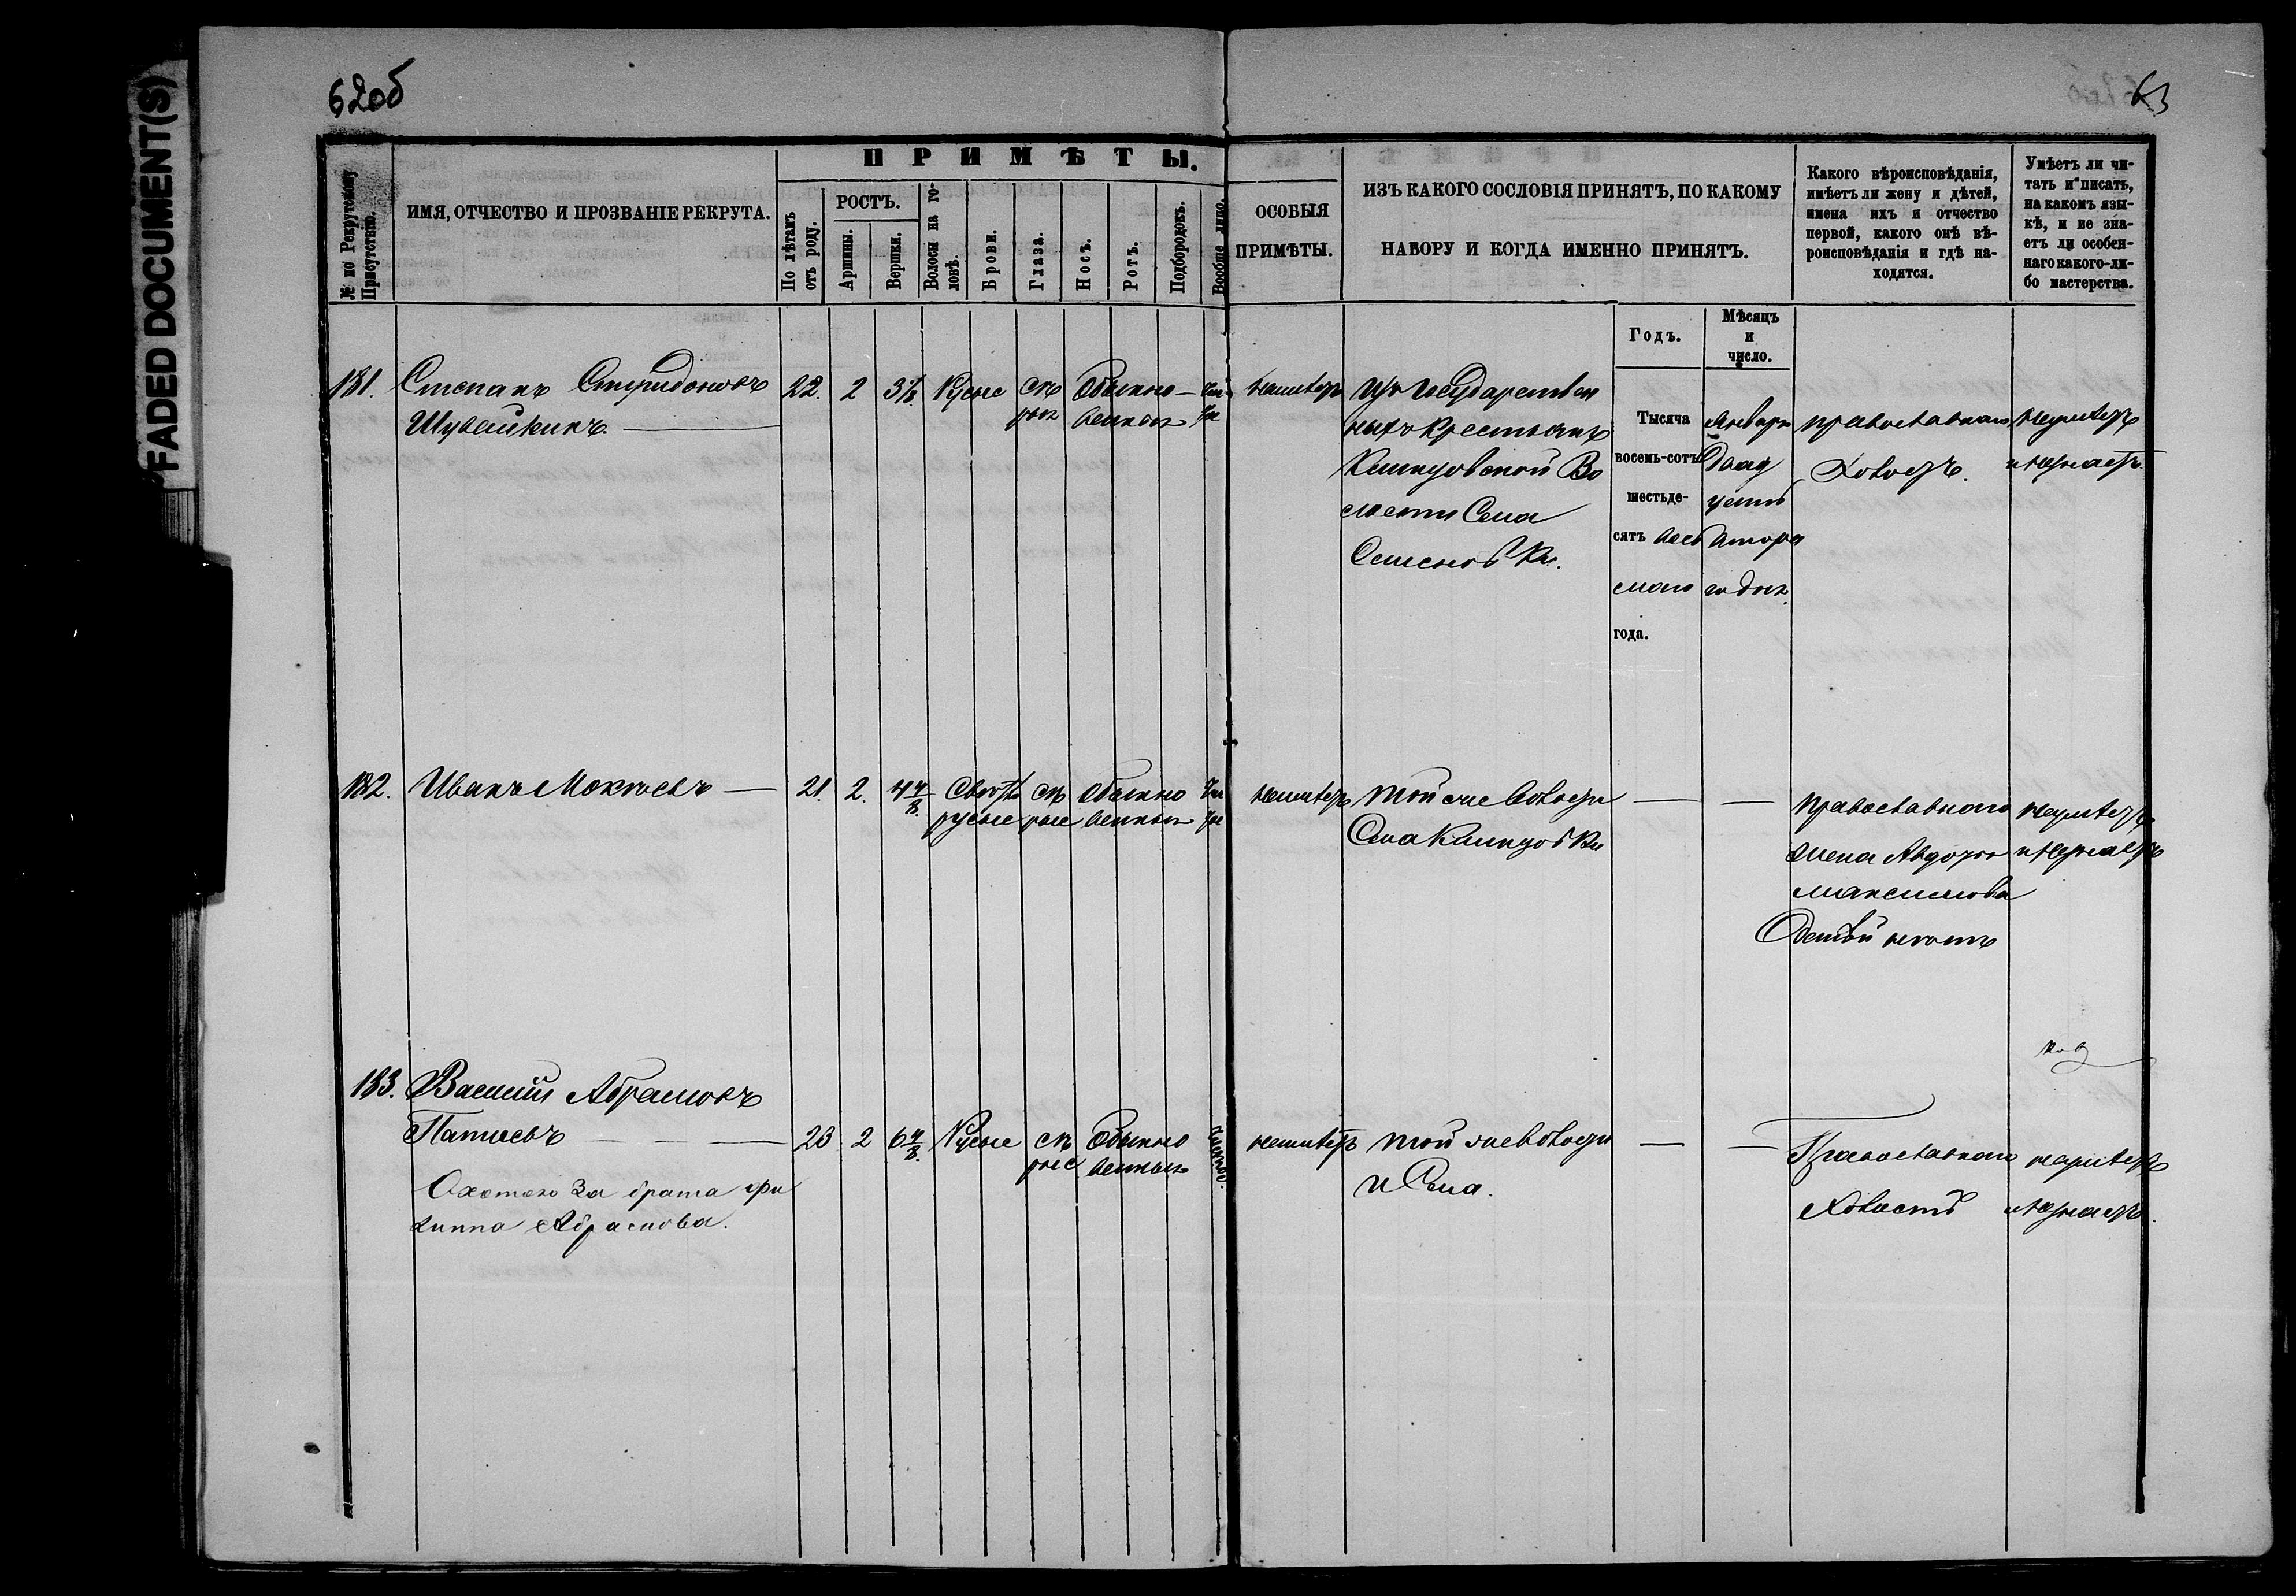 FADED DOCUMENT(S)
62об
63
ПРИМѢТЫ.
№ по Рекрутскому Присутствію.
ИМЯ, ОТЧЕСТВО И ПРОЗВАНІЕ РЕКРУТА.
По лѣтамъ отъ роду.
РОСТЪ.
Аршины.
Вершки.
Волосы на головѣ.
Брови.
Глаза.
Носъ.
Ротъ.
Подбородокъ.
Вообще лицо.
ОСОБЫЯ
ПРИМѢТЫ.
ИЗЪ КАКОГО СОСЛОВІЯ ПРИНЯТЪ, ПО КАКОМУ
НАБОРУ И КОГДА ИМЕННО ПРИНЯТЪ.
Какого вѣроисповѣданія,
имѣетъ ли жену и дѣтей,
имена ихъ и отчество
первой, какого онѣ вѣ-
роисповѣданія и гдѣ на-
ходятся.
Умѣетъ ли чи-
тать и писать,
на какомъ язы-
кѣ, и не зна-
етъ ли особен-
наго какого-ли-
бо мастерства.
Годъ.
Мѣсяцъ
и
число.
181. Степанъ Спиридоновъ
Шувайкинъ.
22. 2 3⅞ Русые сѣ
рые Обыкно-
венные чис
тое
неимѣетъ
Изъ Государствен
ныхъ крестьянъ
Климовской Во
лости Села
Семеновки.
Тысяча
восемь-сотъ
шестьде-
сятъ вось
маго
года.
Января
двад
цать
втора
го дня.
православнаго
Холостъ.
неумѣетъ
и незнаетъ.
182. Иванъ Мокѣевъ
21. 2. 4 4/8 Светло
русые сѣ
рые обыкно
венные чис
тое
неимѣетъ той же волости
Села Климовки
православнаго
жена Авдотья
Максимова
детей нетъ
неумѣетъ
и незнаетъ
183. Василій Абрамовъ
Папшевъ
23 2 6 4/8 Русые сѣ
рые Обыкно
венные чистое.
Охотою за брата Фи
липпа Абрамова.
неимѣетъ той же волости
и Села.
Православнаго
Холостъ
неумѣетъ
и незнаетъ.